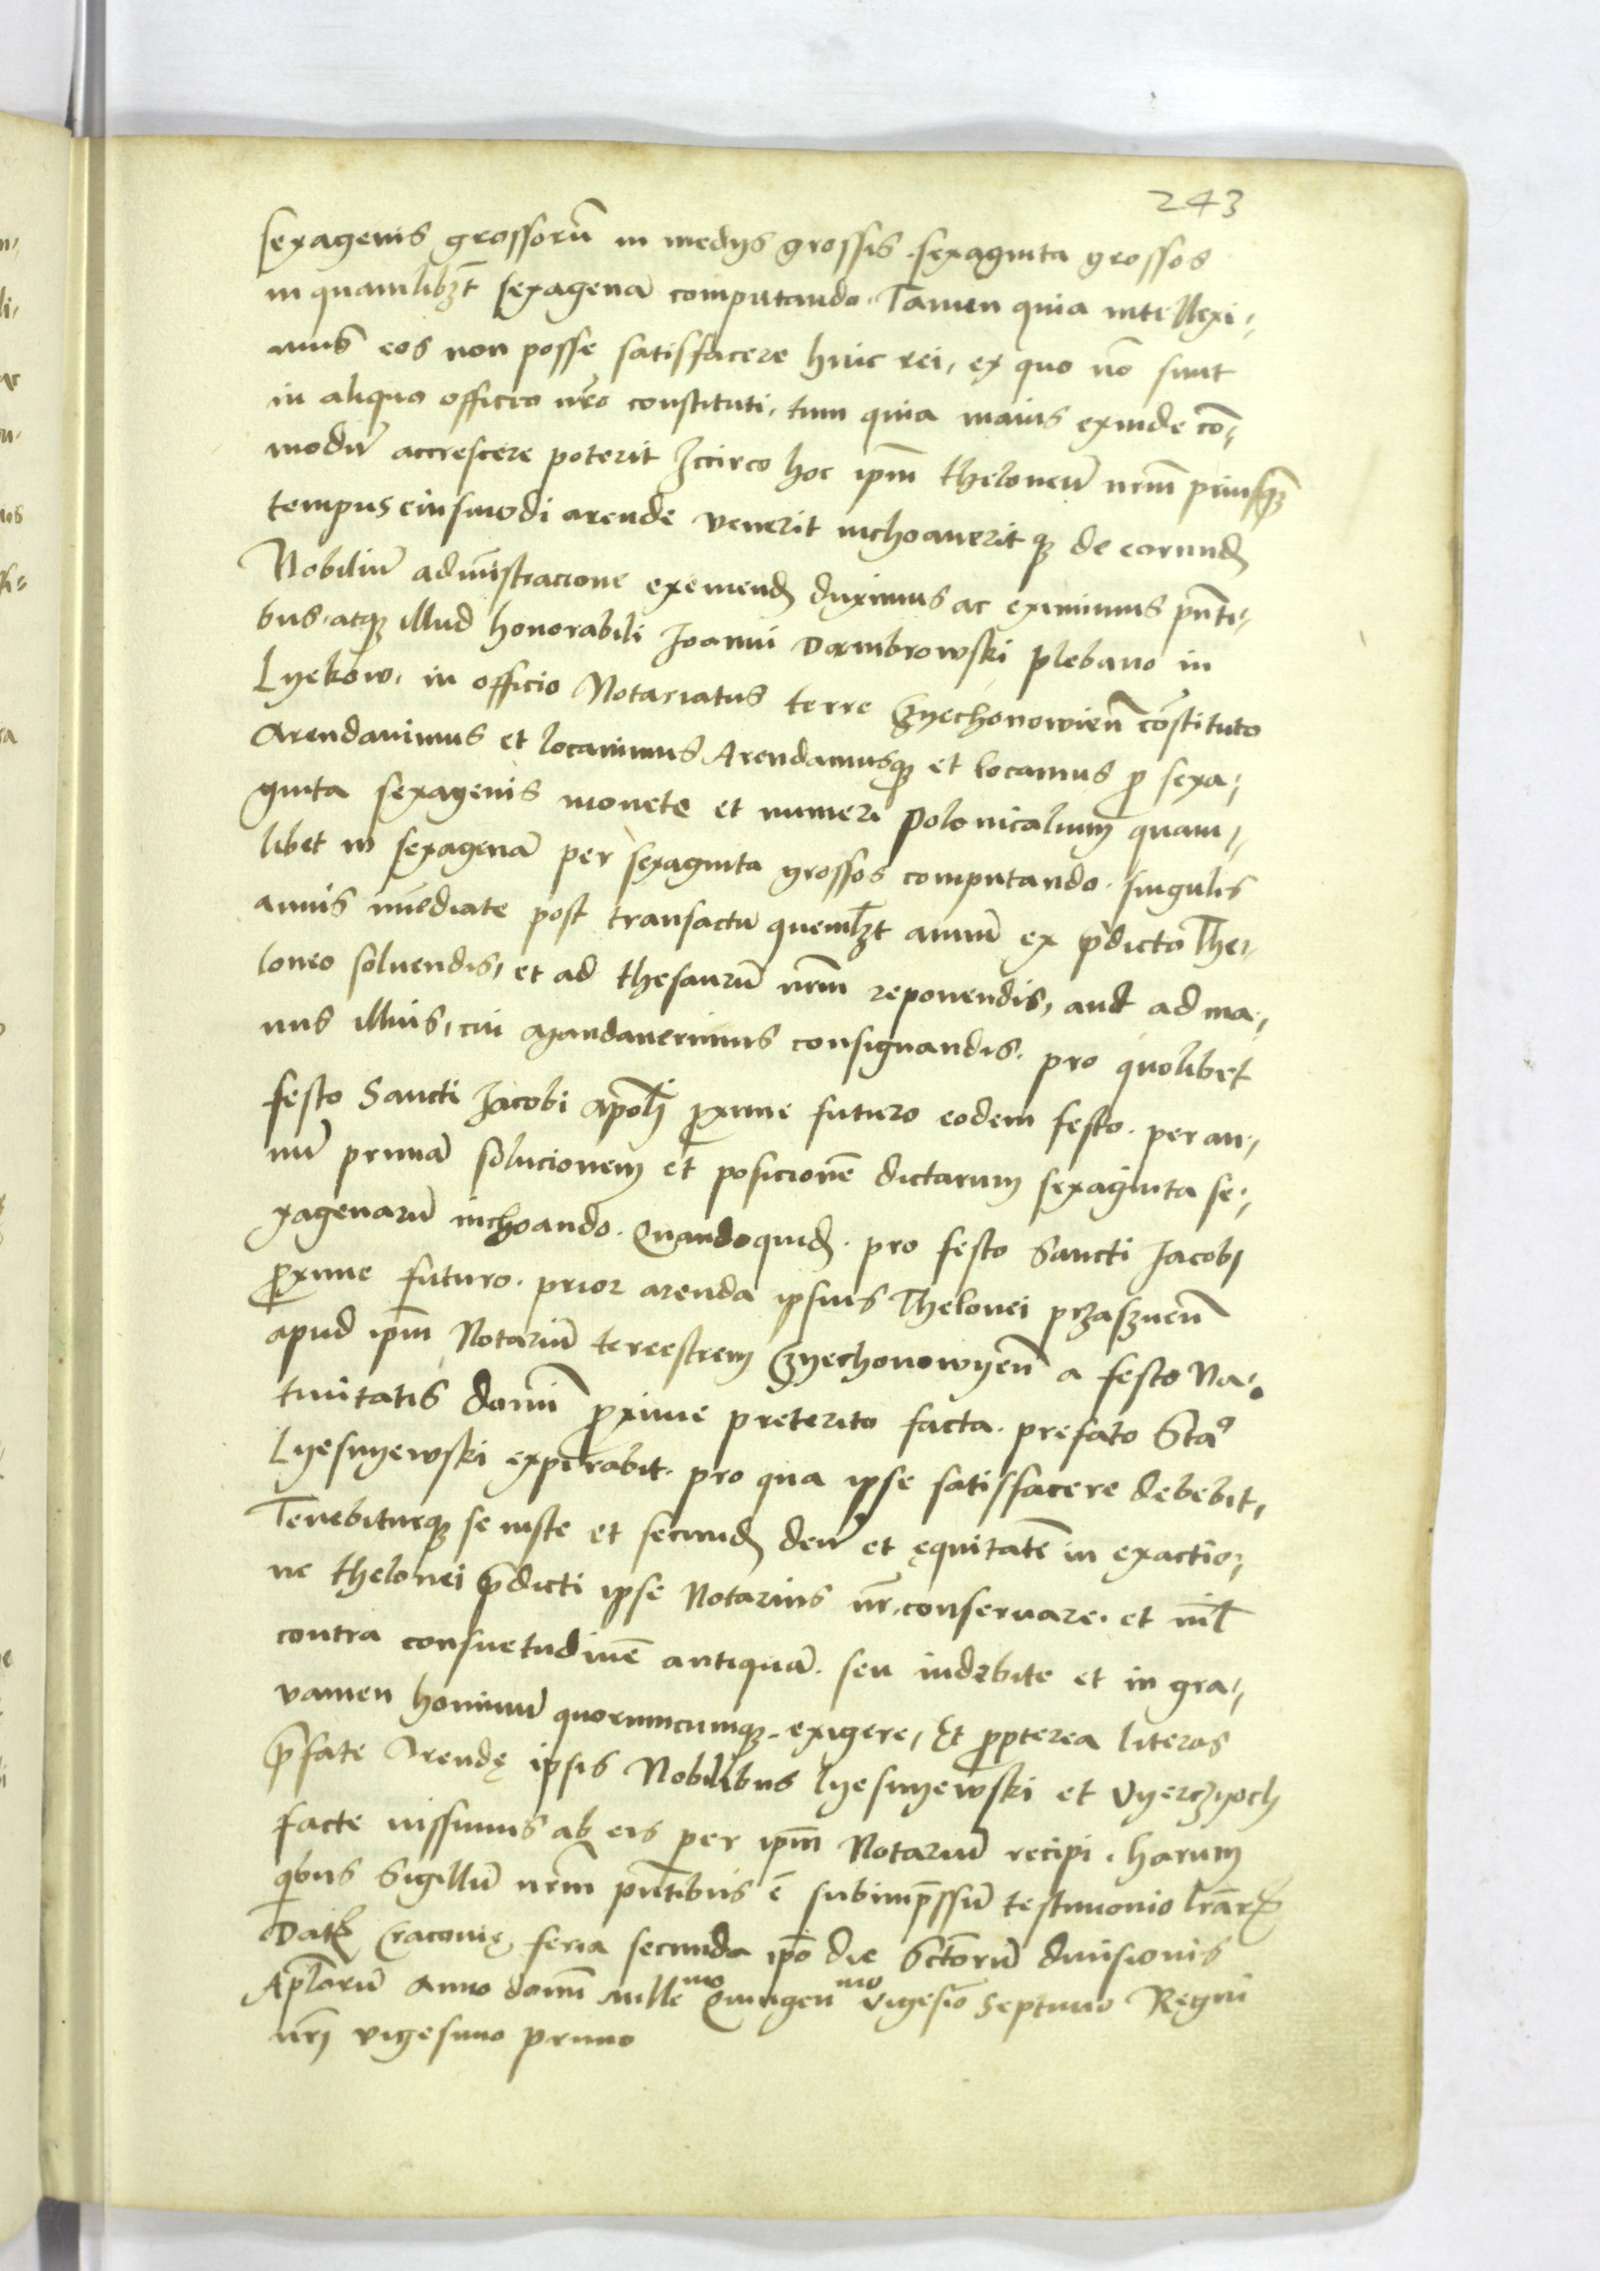 243
sexagenis grossorū in medÿs grossis . sexaginta grossos
in quamlibꝫt sexagenā computando . Tamen quia intellexi-
mus eos non posse satisfacere huic rei, ex quo nō sunt
in aliquo officio nr̄o constituti, tum quia maius exinde cō-
modū accrescere poterit Iccirco hoc ip̄m theloneū nr̄m priusqꝫ
tempus eiusmodi arende venerit inchoaueritqꝫ de eorundꝫ
Nobiliū adm̄istracione exemendꝫ duximus ac eximimus pn̄ti-
bus, atqꝫ illud honorabili Joanni Dambrowski plebano in
Lyekow, in officio Notariatus terre Czyechonowien̄ cōstituto
Arendauimus et locauimus Arendamusqꝫ et locamus ꝑ sexa-
ginta sexagenis monete et numeri polonicalium quam-
libet in sexagenā per sexaginta grossos computando . singulis
annis im̄ediate post transactū quemlꝫt annū ex p̄dicto The-
loneo soluendis, et ad thesaurū nr̄m reponendis, aut ad ma-
nus illius, cui mandauerimus consignandis . pro quolibet
festo Sancti Jacobi apōlj ꝓxime futuro eodem festo . per an-
nū primā solucionem et posicionē dictarum sexaginta se-
xagenarū inchoando . Quandoquidꝫ . pro festo Sancti Jacobj
ꝓxime futuro . prior arenda ipsius Thelonei przasznen̄
apud ip̄m Notariū terrestrem Czyechonowyen̄ a festo Na-
tiuitatis domī ꝓxime preterito facta . prefato Sta⁹
Lyesnyewski expirabit . pro qua ipse satisfacere debebit,
Tenebiturqꝫ se iuste et secundꝫ deū et ęquitatē in exactio-
ne thelonei p̄dicti ipse Notarius nr̄ . conseruare . et nil̄
contra consuetudinē antiquā . seu indebite et in gra-
uamen hominū quorumcumqꝫ . exigere, Et ꝓpterea literas
p̄fate Arendę ipsis Nobilibus lyesnyewski et Vyerczyoch
facte iussimus ab eis per ip̄m Notariū recipi . harum
qbus Sigillū nr̄m pn̄tibus ē subimp̄ssū testimonio lr̄arꝝ
Datꝫ Cracouię, feria secunda ip̄o die Sctorū diuisionis
Ap̄lorū Anno domī mille^mo Quingen^mo vigesīo Septimo Regni
nr̄j vigesimo primo